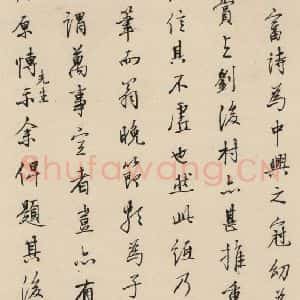 富詩為中興之冠幼
賞之劉後村亦甚推重
信其不虛也然此紙乃
筆而翁晚節頗為子
謂萬事空者豈亦有
原博先生示余俾題其後
Shufawang.CN